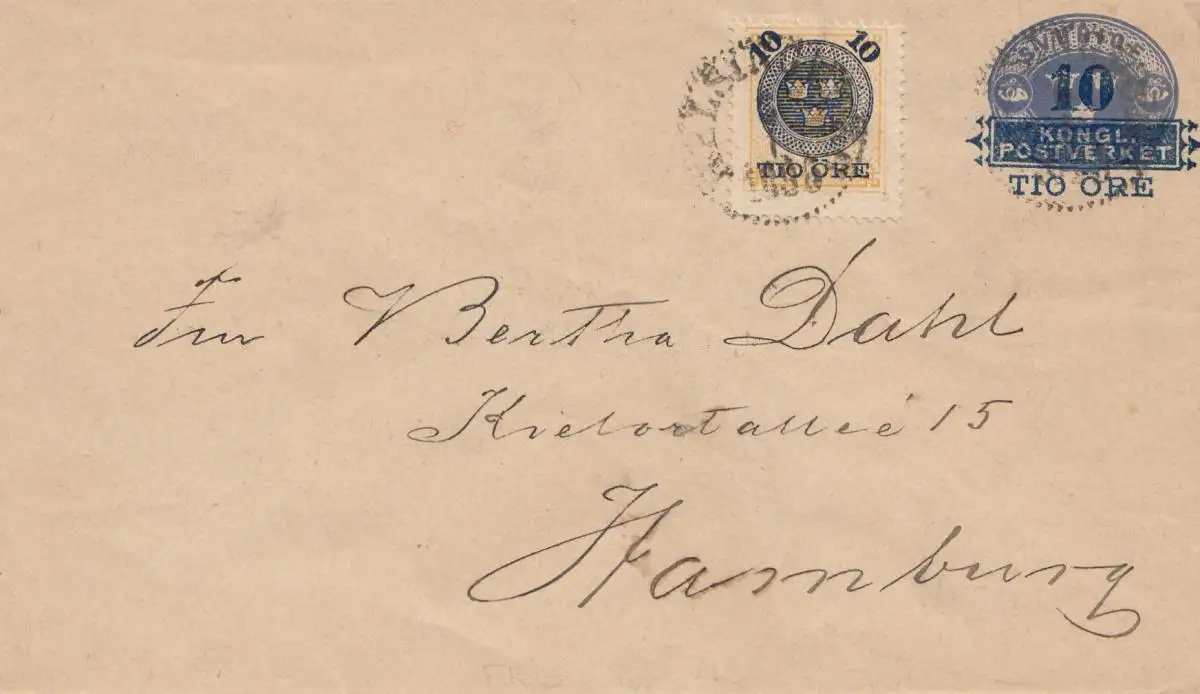 10 10
TIO ÖRE
10
KONGL.
POSTVERKET
TIO ÖRE
Fru Bertha Dahl
Kielortalleé 15
Hamburg